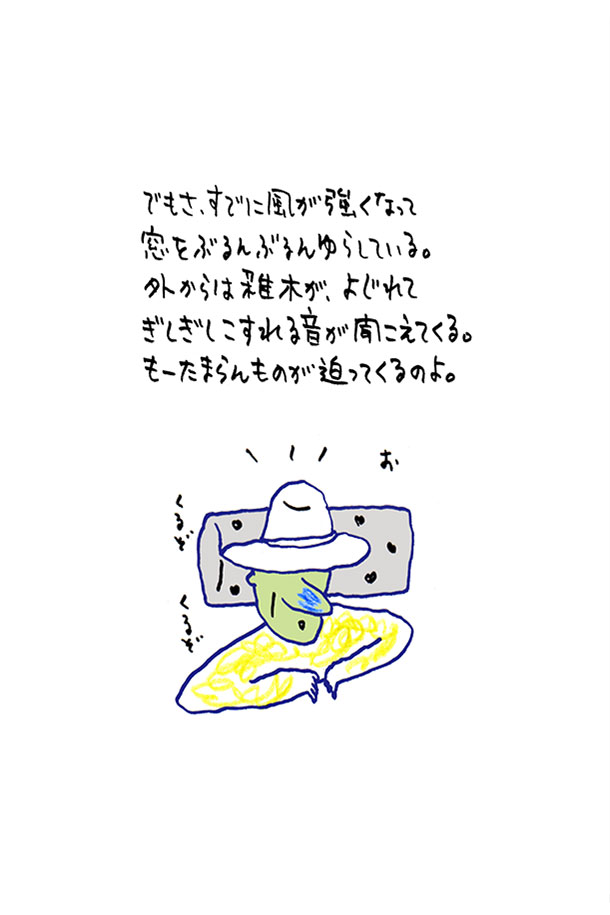 でもさ、すでに風が強くなって
窓をぶるんぶるんゆらしている。
外からは雑木が、よじれて
ぎしぎしこすれる音が聞こえてくる。
もーたまらんものが迫ってくるのよ。
お
くるぞ
くるぞ